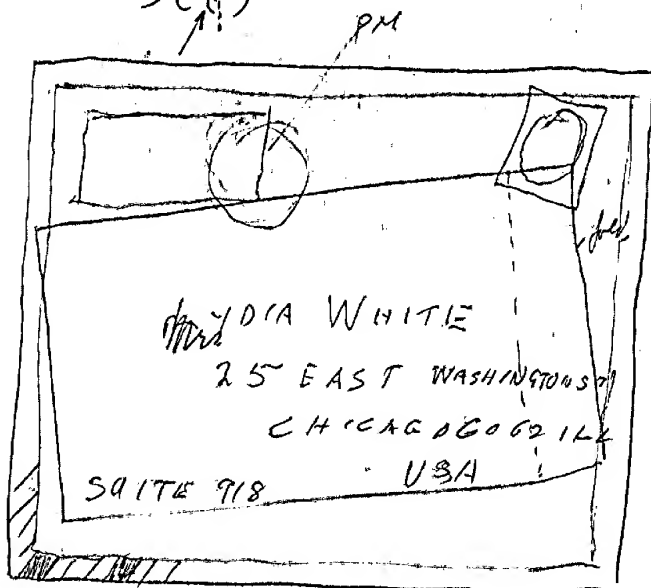 PM
fold
DIA WHITE
25 EAST WASHINGTON ST
CHICAGO 60602 ILL
SUITE 918 USA